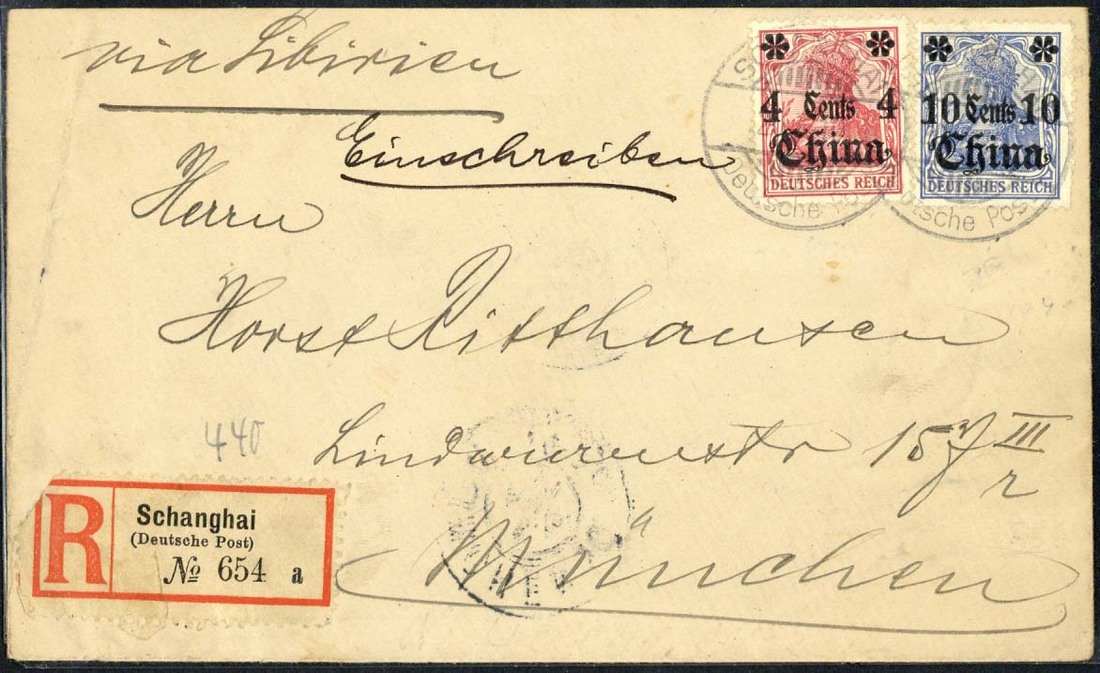 via Sibirien
Einschreiben
4 Cents 4
China
DEUTSCHES REICH
10 Cents 10
China
DEUTSCHES REICH
Deutsche Post
Deutsche Post
Herrn
Horst Ritthausen
440
Lindwurmstr 157 III
r
München
R
Schanghai
(Deutsche Post)
№ 654 a